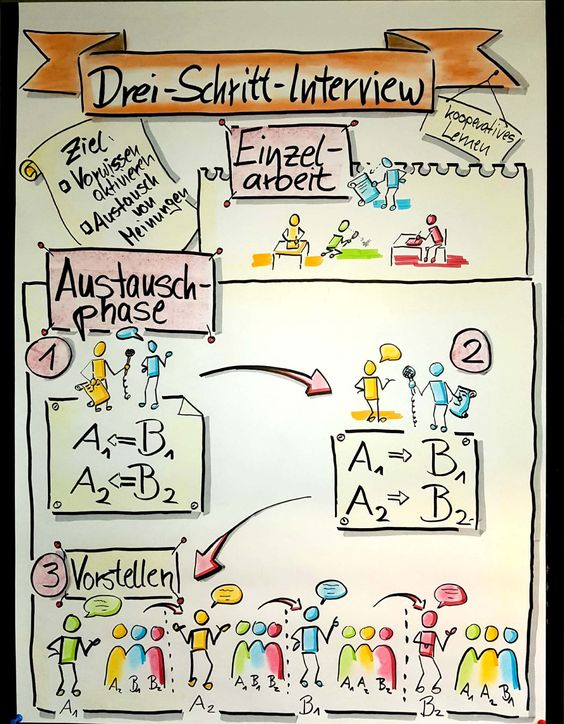 Drei-Schritt-Interview
kooperatives
Lernen
Ziel:
Vorwissen
aktivieren
Austausch
von
Meinungen
Einzel-
arbeit
Austausch-
phase
1
A1 ⇐ B1
A2 ⇐ B2
2
A1 ⇒ B1
A2 ⇒ B2
3 Vorstellen
A2 B1 B2
A1
A2 B1 B2
A2
A1 A2 B2
B1
A1 A2 B1
B2